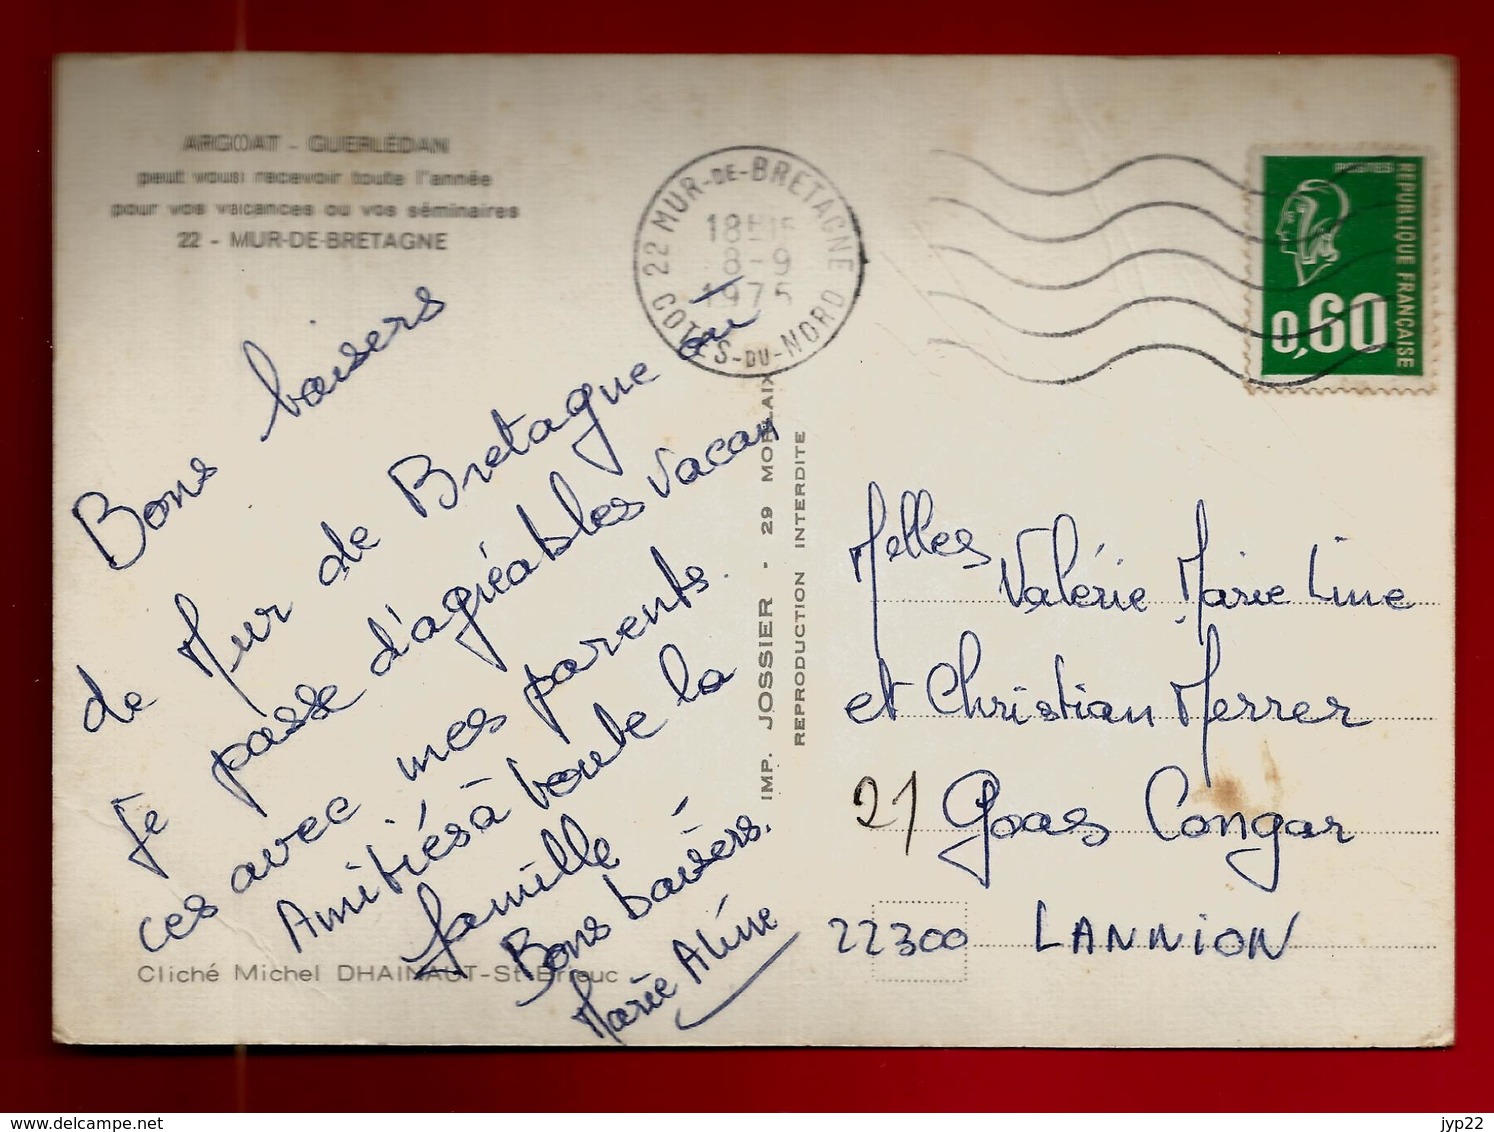 ARGOAT - GUERLÉDAN
peut vous recevoir toute l'année
pour vos vacances ou vos séminaires
22 - MUR-DE-BRETAGNE
22 MUR-DE-BRETAGNE
18H15
8-9
1975
COTES-DU-NORD
POSTES
REPUBLIQUE FRANÇAISE
0,60
Bons baisers
de Mur de Bretagne où
Je passe d'agréables vacan
ces avec mes parents.
Amitiés à toute la
famille
Bons baisers.
Marie Aline
Cliché Michel DHAINAUT-St-Brieuc
IMP. JOSSIER - 29 MORLAIX
REPRODUCTION INTERDITE
Melles Valérie Marie Line
et Christian Merrer
21 Goas Congar
22300 LANNION
www.delcampe.net
jyp22